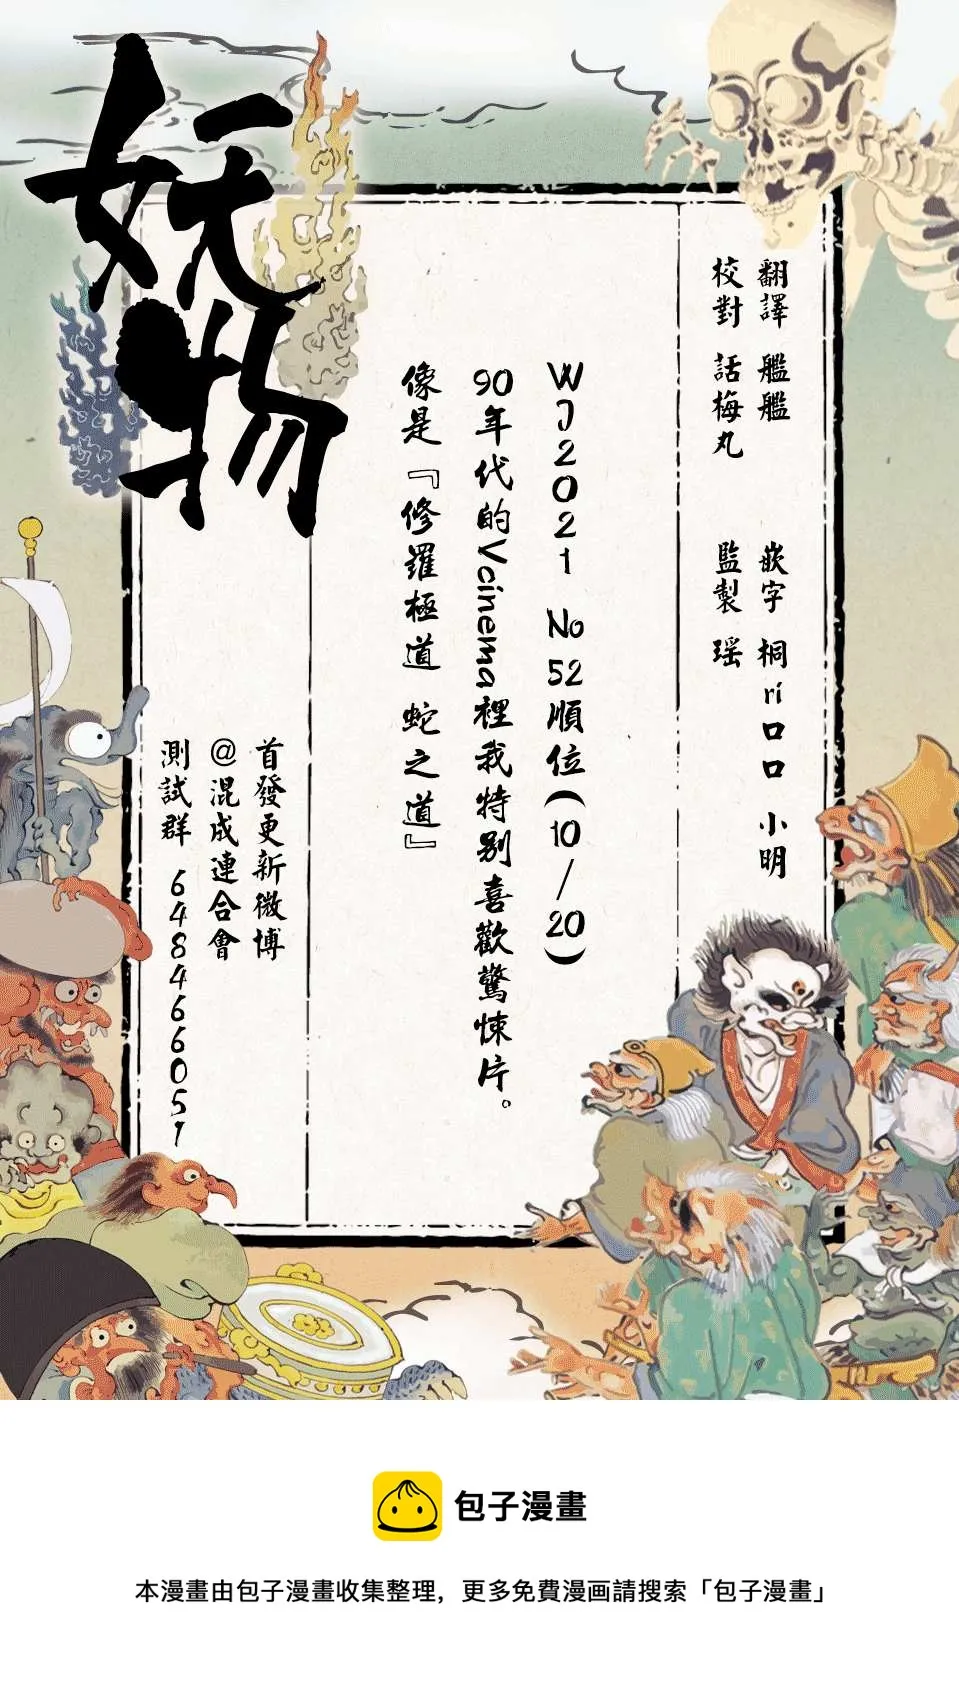 妖物
翻譯 艦艦 嵌字 桐rí口口 小明
校對 話梅丸 監製 瑶
WJ2021 No52順位(10/20)
90年代的Vcinema裡我特别喜歡驚悚片。
像是『修羅極道 蛇之道』
首發更新微博
@混成連合會
測試群 648466051
包子漫畫
本漫畫由包子漫畫收集整理，更多免費漫画請搜索「包子漫畫」